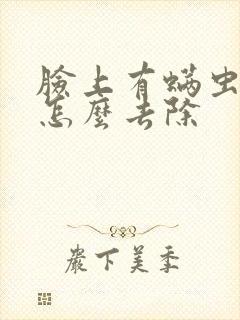 臉上有螨虫
怎麼去除
嚴下美季